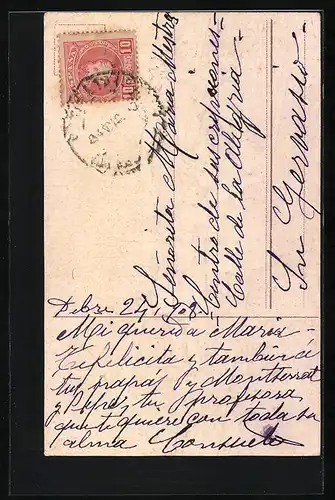 Señorita Maria
Centro de suscripciones
Calle de la Alegria
Sn Gervasio
Dbre 24/908
Mi querida Maria
Te felicita y tambien á
tus papás y Montserrat
y Pepe, tu profesora
que te quiere con toda su
alma Consuelo
10 10